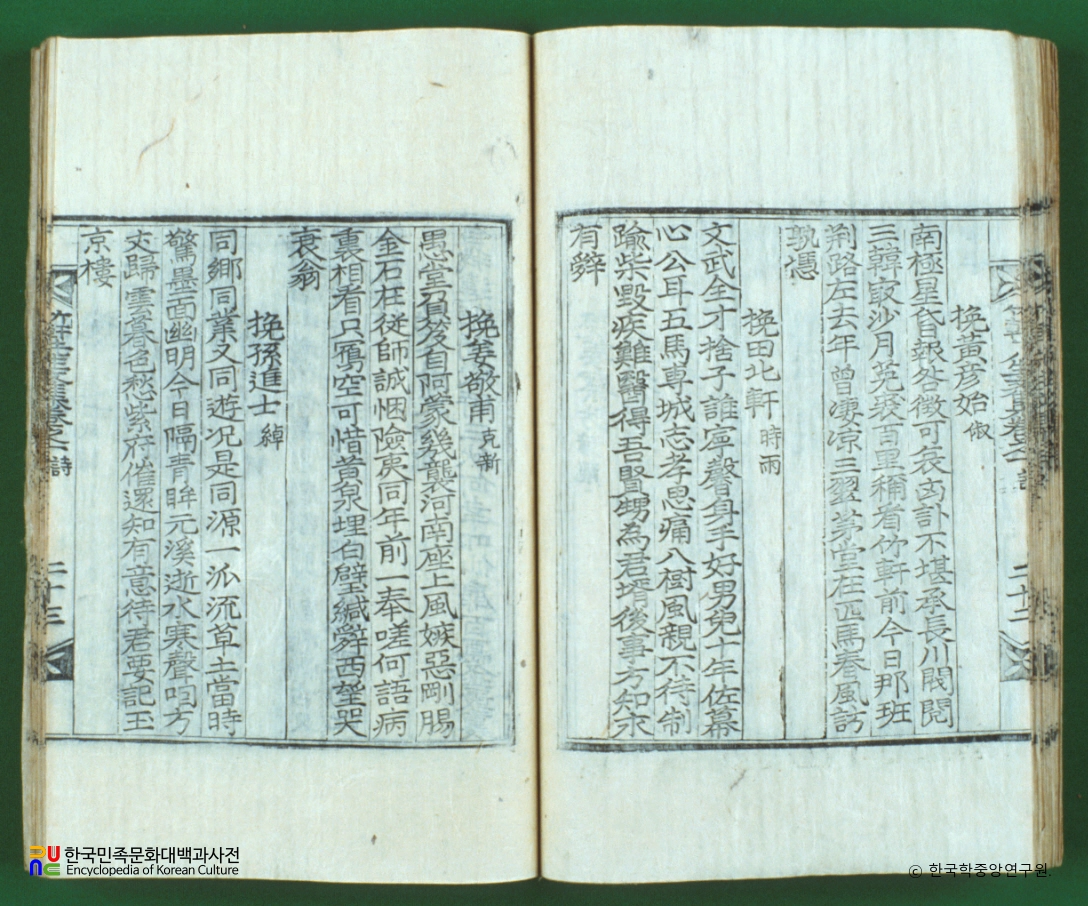 挽黃彥始 俶
南極星昏報咎徵可哀凶訃不堪承長川閥閱
三韓最沙月荒裘百里稱看竹軒前今日那班
荆路左去年曾凄凉三翌茅堂在匹馬春風訪
孰憑
挽田北軒 時雨
文武全才捨子誰寧馨身手好男兒十年佐幕
心公耳五馬專城志孝思痛入樹風親不待制
踰柴毁疾難醫得吾賢甥為君壻後事方知未
有辭
挽姜敬甫 克新
愚堂負笈自阿蒙幾襲河南座上風嫉惡剛腸
金石在從師誠悃險夷同年前一奉嗟何語病
裏相看只鴈空可惜黄泉埋白璧緘辭西望哭
哀翁
挽孫進士 綽
同鄉同業又同遊况是同源一派流草土當時
驚墨面幽明今日隔青眸元溪逝水寒聲咽方
丈歸雲暮色愁紫府催還知有意待君要記玉
京樓
詩
二十三
한국민족문화대백과사전
Encyclopedia of Korean Culture
ⓒ 한국학중앙연구원.